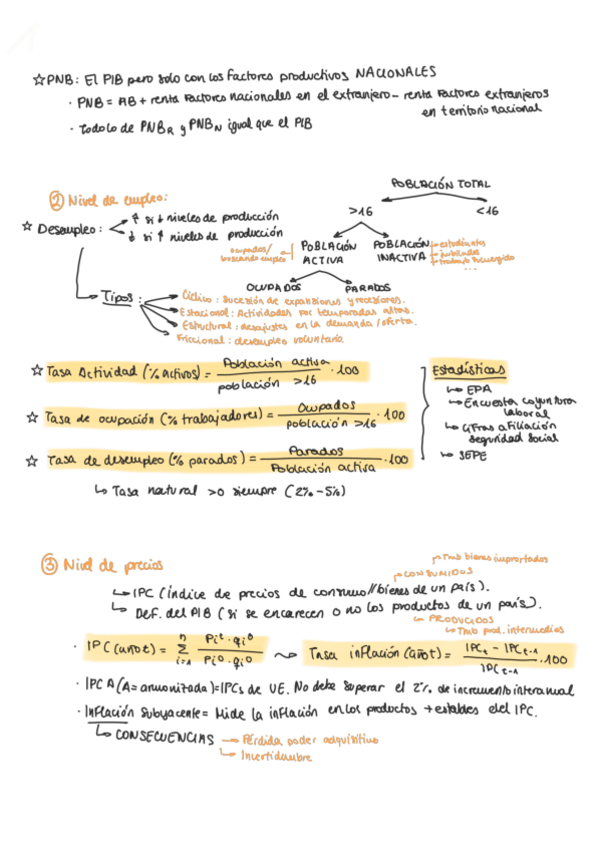 ☆ PNB: El PIB pero solo con los factores productivos NACIONALES
· PNB = AB + renta factores nacionales en el extranjero - renta factores extranjeros
en territorio nacional
· Todo lo de PNB_R y PNB_N igual que el PIB
② Nivel de empleo:
POBLACIÓN TOTAL
>16 <16
☆ Desempleo: ↑ si ↓ niveles de producción
↓ si ↑ niveles de producción
ocupados/
buscando empleo
POBLACIÓN ACTIVA
POBLACIÓN INACTIVA
estudiantes
jubilados
trabajo sumergido
...
OCUPADOS PARADOS
Tipos:
Cíclico: Sucesión de expansiones y recesiones.
Estacional: Actividades por temporadas altas.
Estructural: desajustes en la demanda/oferta.
Friccional: desempleo voluntario
☆ Tasa Actividad (% activos) = Población activa / población >16 · 100
☆ Tasa de ocupación (% trabajadores) = Ocupados / población >16 · 100
☆ Tasa de desempleo (% parados) = Parados / Población activa · 100
↳ Tasa natural >0 siempre (2% - 5%)
Estadísticas
↳ EPA
↳ Encuesta coyuntura
laboral
↳ Cifras afiliación
seguridad social
↳ SEPE
③ Nivel de precios
→ Tmb bienes importados
→ CONSUMIDOS
↳ IPC (índice de precios de consumo // bienes de un país).
↳ Def. del PIB (si se encarecen o no los productos de un país).
↳ PRODUCIDOS
↳ Tmb prod. intermedios
· IPC (año t) = Σ n i=1 Pi^t · qi^0 / Pi^0 · qi^0 ⇝ Tasa inflación (año t) = IPC_t - IPC_t-1 / IPC_t-1 · 100
· IPCA (A = armonizada) = IPCs de UE. No debe superar el 2% de incremento interanual
· Inflación subyacente = Mide la inflación en los productos + estables del IPC.
↳ CONSECUENCIAS → Pérdida poder adquisitivo
↳ Incertidumbre